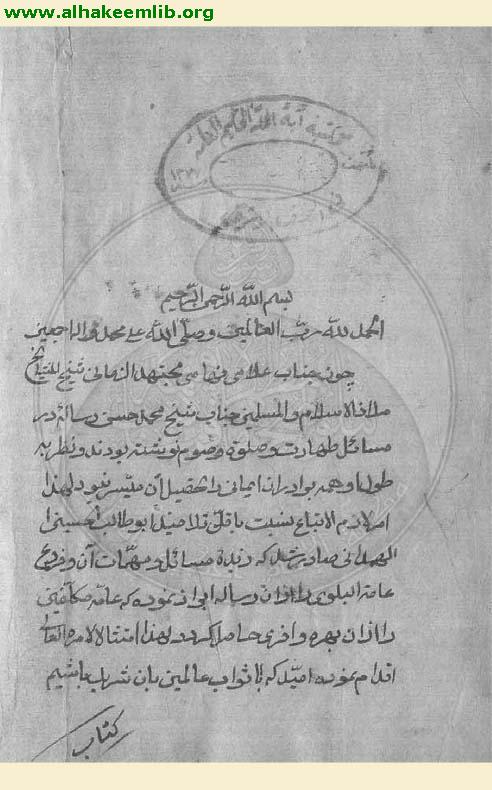 www.alhakeemlib.org
مكتبة آية الله الحكيم العامة
بسم الله الرحمن الرحيم
الحمد لله رب العالمين وصلى الله على محمد واله اجمعين
چون جناب علامى فهامى مجتهد الزمانى شيخ المشايخ
ملاذ الاسلام والمسلمين جناب شيخ محمد حسن رساله در
مسائل طهارت وصلوة وصوم نوشته بودند ونظر به
طول او همه برادران ايمانى را تحصيل آن ميسر نبود لهذا
امر لازم الاتباع بنسبت باقل تلاميذ ابو طالب الحسينى
الهمدانى صادر شد كه زبدة مسائل ومهمات آن وفروع
عامة البلوى را از ان رساله ابراز نموده كه عامه مكلفين
را از ان بهره وافرى حاصل كردد لهذا امتثالا لامره العالى
اقدام نموده اميد كه با ثواب عالمين بان شريك باشيم
كتاب